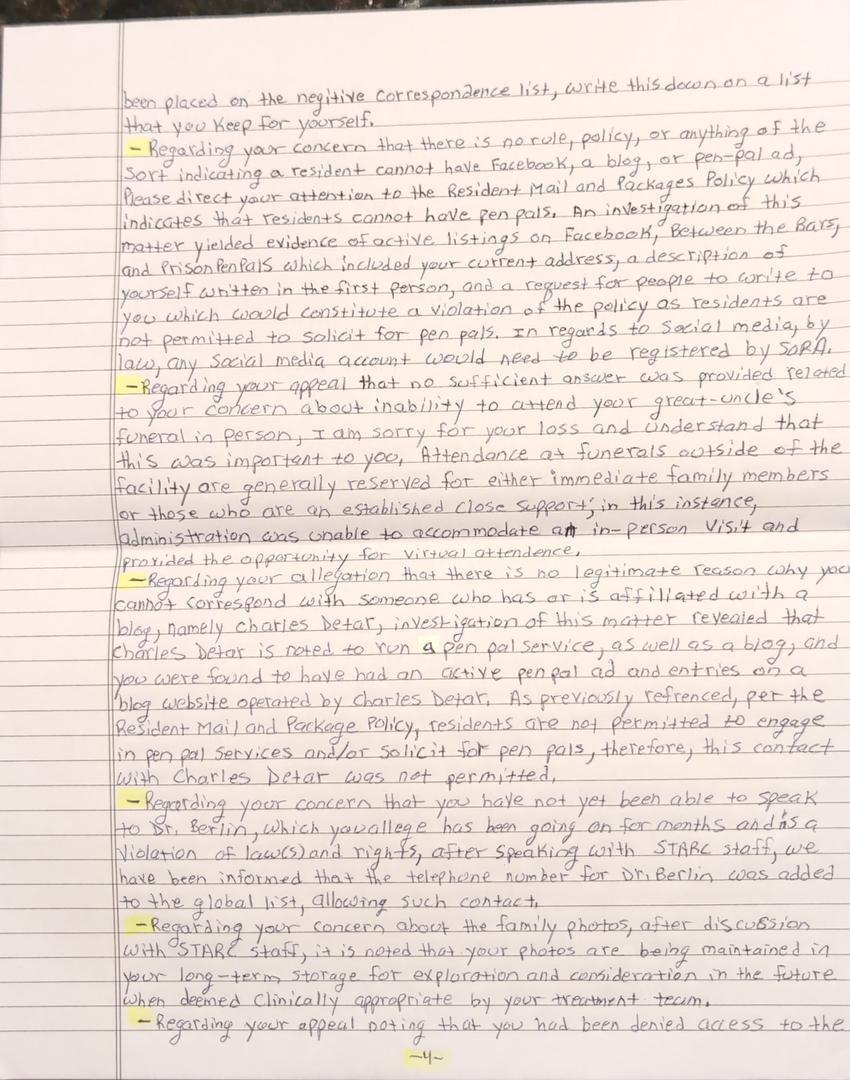 been placed on the negitive correspondence list, write this down on a list
that you keep for yourself.
- Regarding your concern that there is no rule, policy, or anything of the
Sort indicating a resident cannot have Facebook, a blog, or pen-pal ad,
Please direct your attention to the Resident Mail and Packages Policy which
indicates that residents cannot have pen pals. An investigation of this
matter yielded evidence of active listings on Facebook, Between the Bars,
and PrisonPenPals which included your current address, a description of
yourself written in the first person, and a request for people to write to
you which would constitute a violation of the policy as residents are
not permitted to solicit for pen pals. In regards to Social media, by
law, any Social media account would need to be registered by SORA.
- Regarding your appeal that no sufficient answer was provided related
to your concern about inability to attend your great-uncle's
funeral in person, I am sorry for your loss and understand that
this was important to you, Attendance at funerals outside of the
facility are generally reserved for either immediate family members
or those who are an established close support; in this instance,
administration was unable to accommodate an in-person visit and
provided the opportunity for virtual attendence.
- Regarding your allegation that there is no legitimate reason why you
cannot correspond with someone who has or is affiliated with a
blog, namely Charles Detar, investigation of this matter revealed that
Charles Detar is noted to run a pen pal service, as well as a blog, and
you were found to have had an active pen pal ad and entries on a
blog website operated by Charles Detar. As previously refrenced, per the
Resident Mail and Package Policy, residents are not permitted to engage
in pen pal services and/or solicit for pen pals, therefore, this contact
with Charles Detar was not permitted.
- Regarding your concern that you have not yet been able to speak
to Dr. Berlin, which you allege has been going on for months and is a
Violation of law(s) and rights, after speaking with STARC staff, we
have been informed that the telephone number for Dr. Berlin was added
to the global list, allowing such contact.
- Regarding your concern about the family photos, after discussion
with STARC staff, it is noted that your photos are being maintained in
your long-term storage for exploration and consideration in the future
when deemed clinically appropriate by your treatment team.
- Regarding your appeal noting that you had been denied access to the
-4-